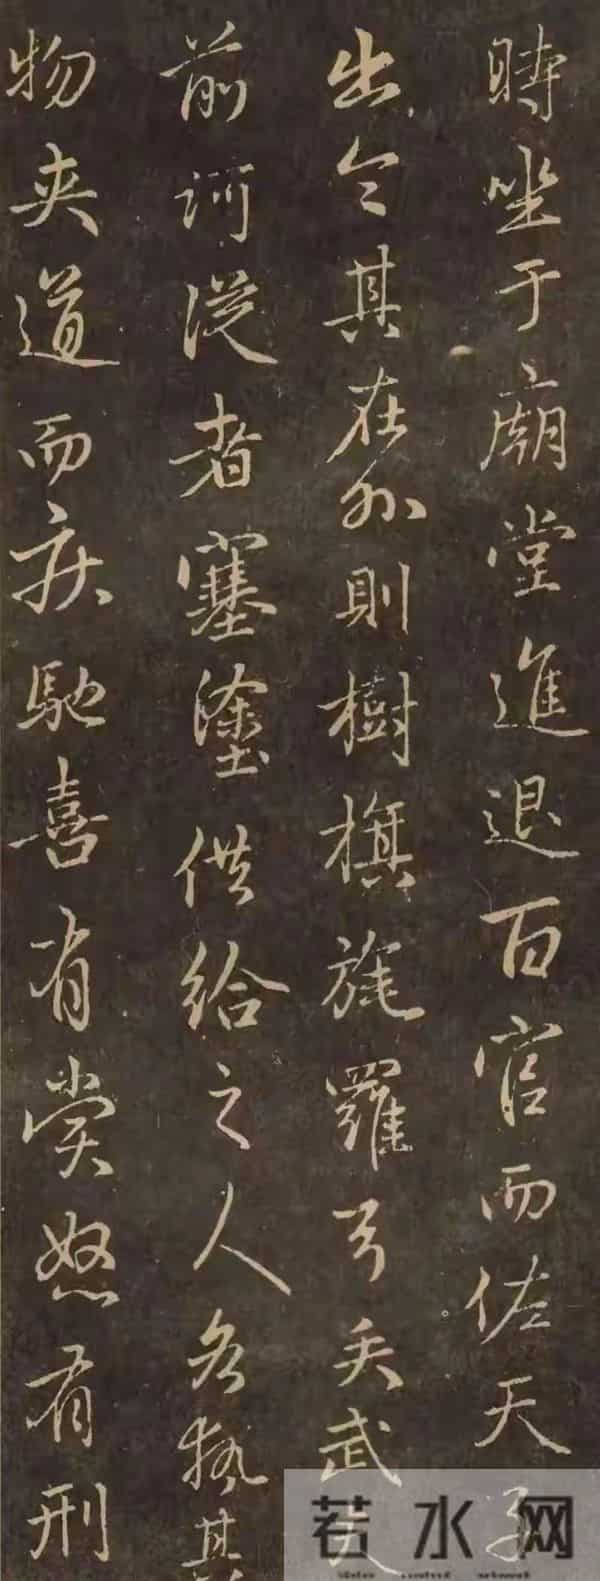 時坐于廟堂進退百官而佐天子
出令其在外則樹旗旄羅弓矢武夫
前訶從者塞塗供給之人各執其
物夾道而疾馳喜有賞怒有刑
若水网